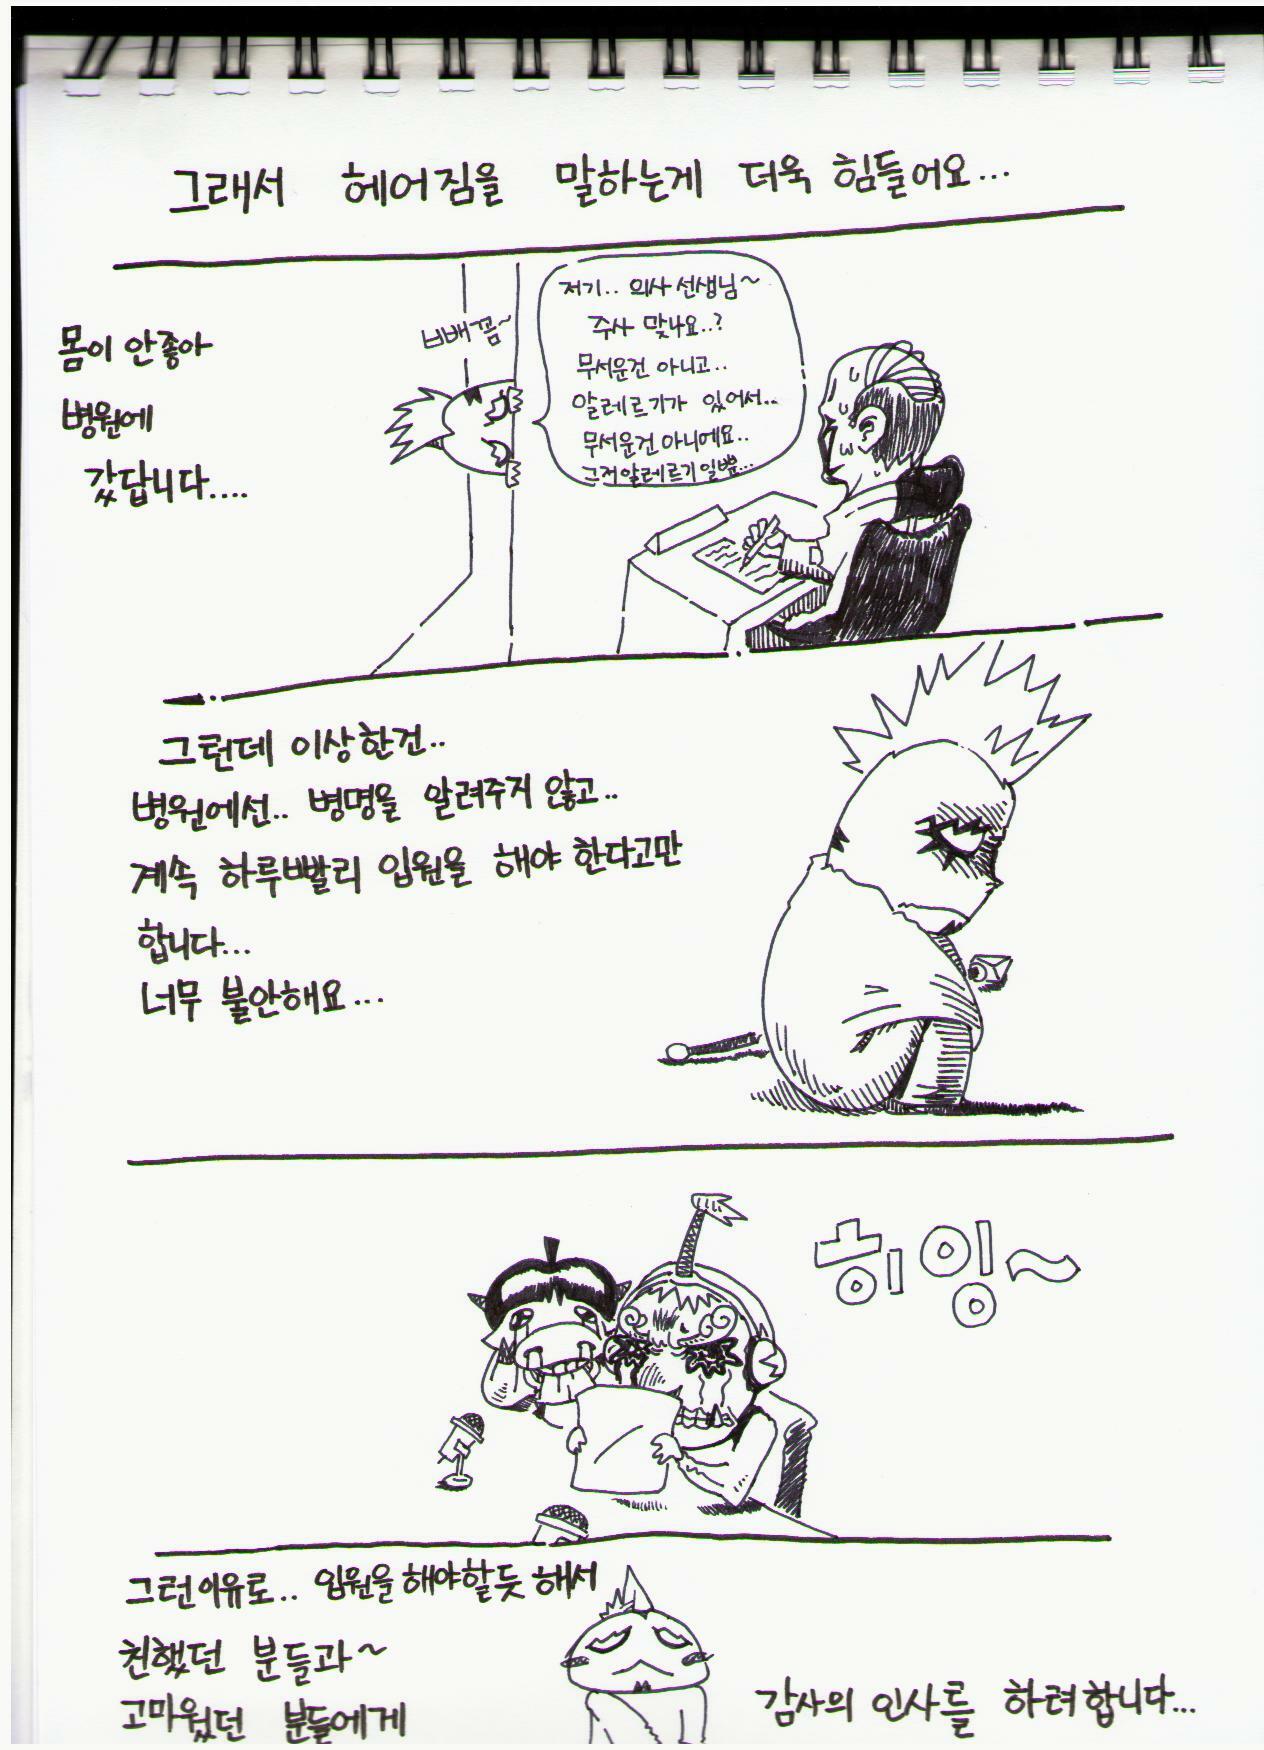 그래서 헤어짐을 말하는게 더욱 힘들어요...
몸이 안좋아
병원에
갔답니다....
빼꼼~
저기.. 의사 선생님~
주사 맞나요..?
무서운건 아니고..
알레르기가 있어서..
무서운건 아니에요..
그저 알레르기일뿐...
그런데 이상한건..
병원에선.. 병명을 알려주지 않고..
계속 하루빨리 입원을 해야 한다고만
합니다...
너무 불안해요...
히잉~
그런이유로.. 입원을 해야할듯 해서
친했던 분들과~
고마웠던 분들에게
감사의 인사를 하려합니다...